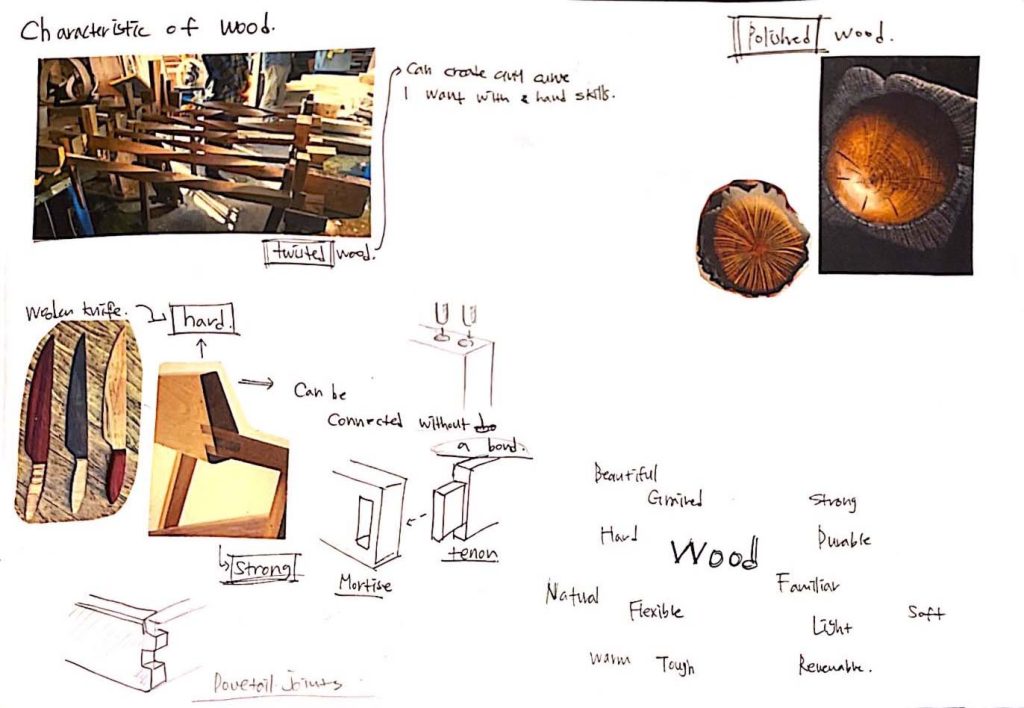 Characteristic of wood.
Polished wood.
Can create curve
I want with hand skills.
twisted wood.
Wooden knife.
hard.
Can be
Connected without
a bond.
Strong
Mortise
tenon
Dovetail joints
Beautiful
Grained
Strong
Hard
Wood
Durable
Familiar
Natural
Flexible
Soft
Light
Warm
Tough
Renewable.